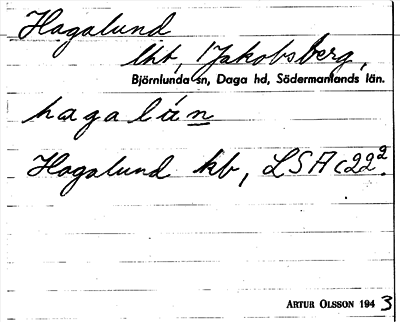 Hagalund
lht, Jakobsberg,
Björnlunda sn, Daga hd, Södermanlands län.
hagalún
Hagalund kb, LSA C22².
ARTUR OLSSON 1943